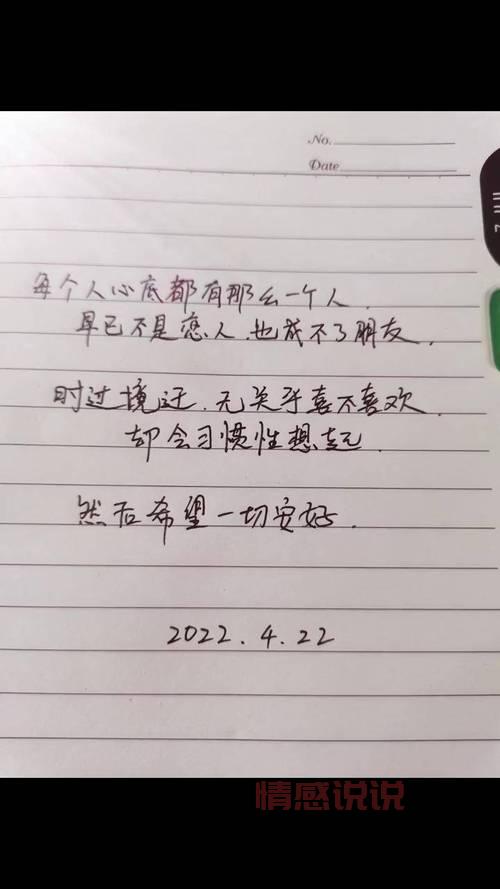 No.
Date
每个人心底都有那么一个人.
早已不是恋人.也成不了朋友.
时过境迁.无关乎喜不喜欢.
却会习惯性想起.
然后希望一切安好.
2022.4.22
情感说说